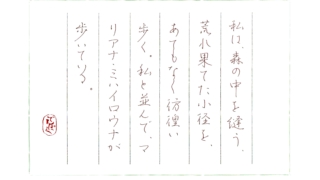 私は、森の中を縫う、
荒れ果てた小径を、
あてもなく彷徨い
歩く。私と並んで、マ
リアナ・ミハイロウナが
歩いている。